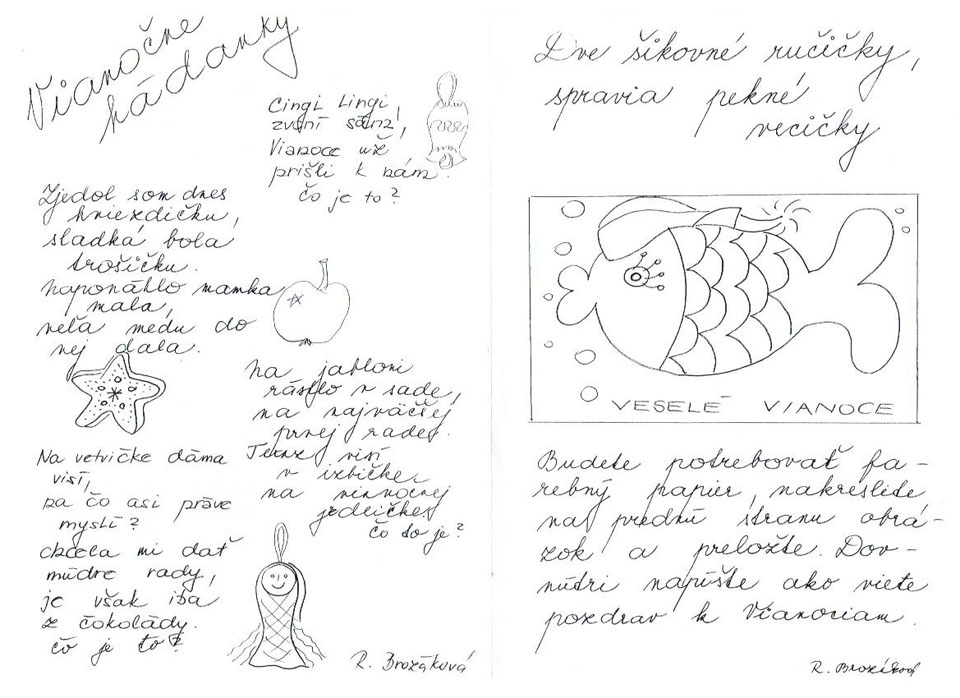 Vianočné
hádanky
Cingi Lingi,
zvoní sáňz,
Vianoce už
prišli k nám.
čo je to?
Zjedol som dnes
hviezdičku,
sladká bola
trošičku.
naponáhlo mamka
mala,
veľa medu do
nej dala.
Na jabloni
rástlo v sade,
na najväčšej
prvej rade.
Teraz visí
v izbičke
na vianočnej
jedličke.
čo to je?
Na vetvičke dáma
visí,
na čo asi práve
myslí?
chcela mi dať
múdre rady,
je však iba
z čokolády.
čo je to?
R. Brozáková
Dve šikovné ručičky,
spravia pekné
vecičky
VESELÉ VIANOCE
Budete potrebovať fa-
rebný papier, nakreslite
na prednú stranu obrá-
zok a preložte. Dov-
nútri napíšte ako viete
pozdrav k Vianociam.
R.